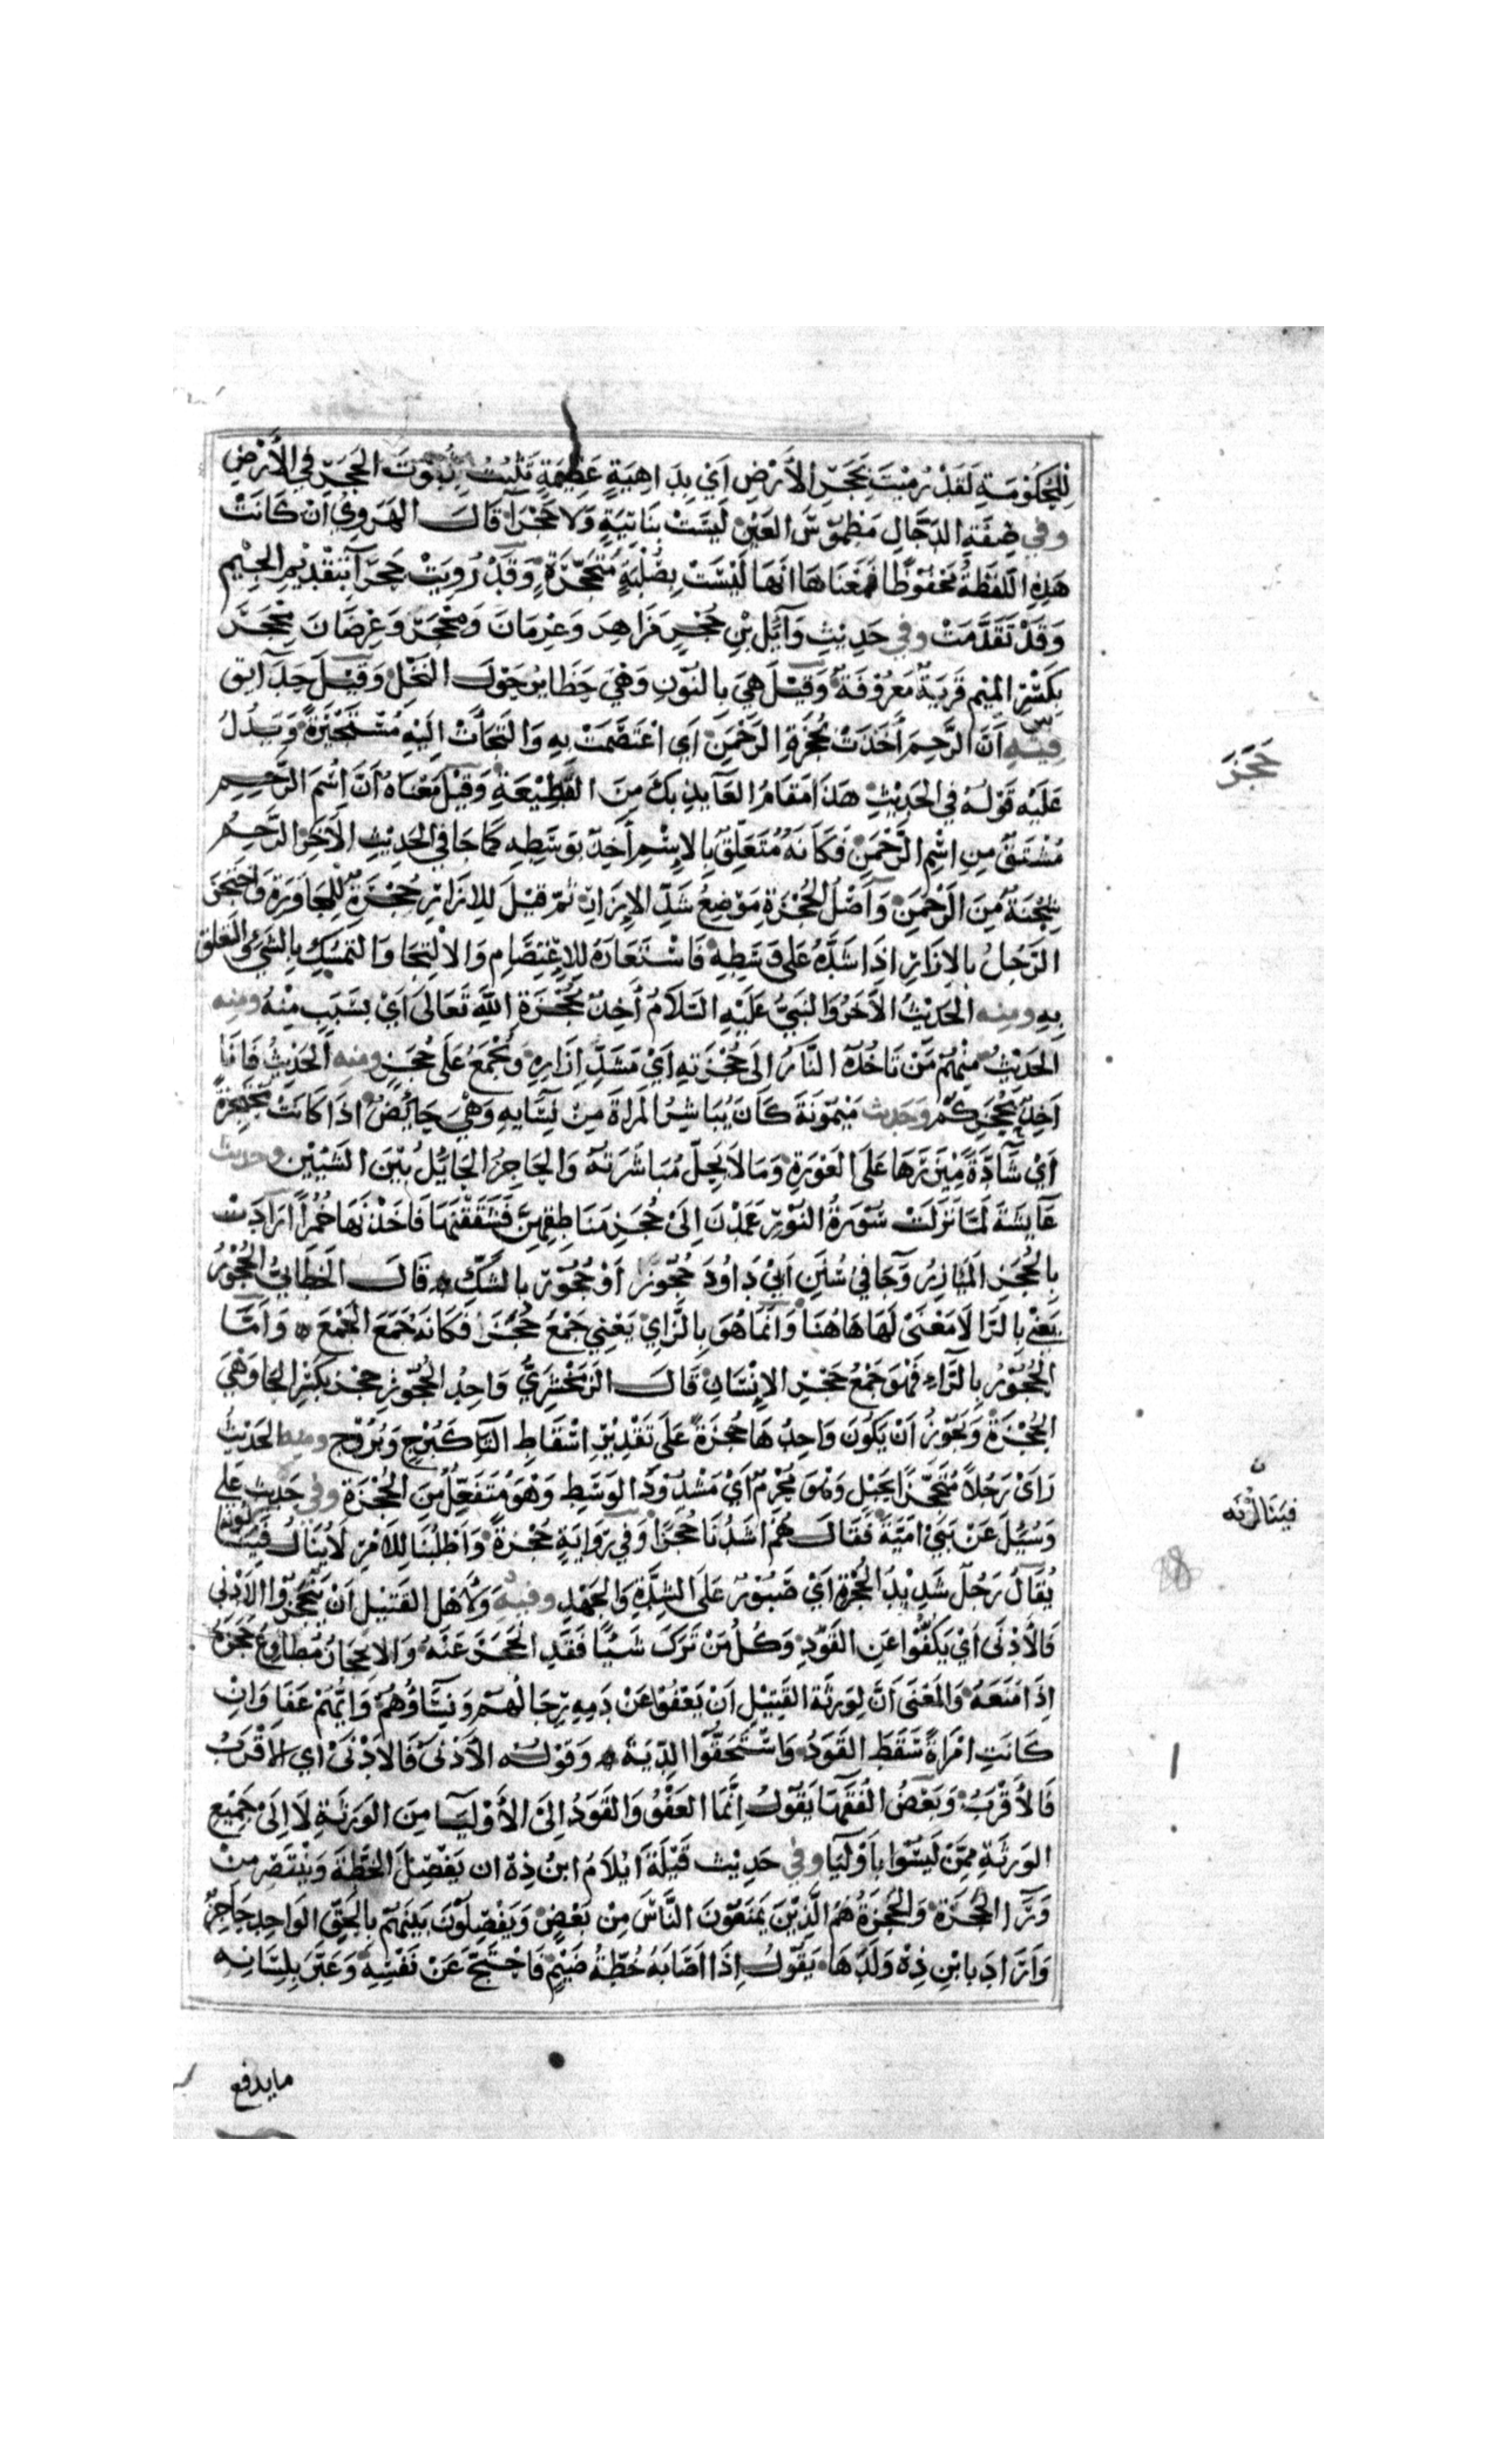 لِلْحُكُومَةِ لَقَدْ رُمِيتَ بِحَجَرِ الأَرْضِ اَيْ بِدَاهِيَةٍ عَظِيْمَةٍ تَثْبُتُ ثُبُوْتَ الحَجَرِ فِي الأَرْضِ
وفي صِفَةِ الدَّجَّالِ مَطْمُوْسُ العَيْنِ لَيْسَتْ بِنَاتِيَةٍ وَلَا حَجْرَا قَالَ الهَرَوِيُ اِنْ كَانَتْ
هَذِهِ اللَّفْظَةُ مَحْفُوْظًا فَمَعْنَاهَا اَنَّهَا لَيْسَتْ بِصُلْبَةٍ مُتَحَجِّرَةٍ وَقَدْ رُوِيَتْ جَحْرَآ بِتَقْدِيْمِ الجِيْمِ
وَقَدْ تَقَدَّمَتْ وفي حَدِيْثِ وَآئِلِ بْنِ حُجْرٍ مَزَاهِرَ وَعِرْمَانَ وَمِحْجَرٍ وَعِرْضَانَ مِحْجَرَ
بِكَسْرِ المِيْمِ قَرْيَةٌ مَعْرُوْفَةٌ وَقِيْلَ هِيَ بِالنُّوْنِ وَهْيَ حَظَايِرُ حَوْلَ النَّخْلِ وَقِيْلَ حَدَآئِق
فِيْهِ اَنَّ الرَّحِمَ أَخَذَتْ بِحُجْزَةِ الرَّحْمَنِ اَيِ اعْتَصَمَتْ بِهِ وَالْتَجَأَتْ اِلَيْهِ مُسْتَجِيْرَةً وَيَدُلُ
عَلَيْهِ قَوْلُهُ فِي الحَدِيْثِ هَذَا مَقَامُ العَآئِذِ بِكَ مِنَ القَطِيْعَةِ وَقِيْلَ مَعْنَاهُ أَنَّ اسْمَ الرَّحِمِ
مُشْتَقٌّ مِنِ اسْمِ الرَّحْمَنِ فَكَاَنَّهُ مُتَعَلِّقٌ بِالاِسْمِ أَخِذٌ بِوَسَطِهِ كَمَا جَا فِي الحَدِيْثِ الأَخِرْ الرَّحِمُ
شِجْنَةٌ مِنَ الرَّحْمَنِ وَأَصْلُ الحُجْزَةِ مَوْضِعُ شَدِّ الاِزَارِ ثُمَّ قِيْلَ لِلاِزَارِ حُجْزَةٌ لِلْمُجَاوَرَةِ وَاحْتَجَزَ
الرَّجُلُ بِالاِزَارِ اِذَا شَدَّهُ عَلَى وَسَطِهِ فَاسْتَعَارَهُ لِلاِعْتِصَامِ وَالاِلْتِجَا وَالتَّمَسُّكِ بِالشَّيْءِ وَالتَّعَلُّق
بِهِ ومنه الحَدِيْثُ الأَخَرُ وَالنَّبِيُّ عَلَيْهِ السَّلَامُ أَخِذٌ بِحُجْزَةِ اللهِ تَعَالَى اَيْ بِسَبَبٍ مِنْهُ ومنه
الحَدِيْثُ مِنْهُمْ مَنْ تَأْخُذُهُ النَّارُ اِلَى حُجْزَتِهِ اَيْ مَشَدِّ اِزَارِهِ وَتُجْمَعُ عَلَى حُجَزٍ ومنه الحَدِيْثُ فَاَنَا
أَخِذٌ بِحُجَزِكُمْ وحديث مَيْمُوْنَةَ كَانَ يُبَاشِرُ المَرْاَةَ مِنْ نِسَآئِهِ وَهْيَ حَائِضٌ اِذَا كَانَتْ مُحْتَجِزَةً
اَيْ شَآدَّةً مِيْزَرَهَا عَلَى العَوْرَةِ وَمَا لَا يَحِلُّ مُبَاشَرَتُهُ وَالحَاجِزُ الحَائِلُ بَيْنَ الشَّيْئَيْنِ وحديث
عَآئِشَةَ لَمَّا نَزَلَتْ سُوْرَةُ النُّوْرِ عَمَدْنَ اِلَى حُجَزِ مَنَاطِقِهِنَّ فَشَقَقْنَهَا فَاتَّخَذْنَهَا خُمُرًا اَرَادَتْ
بِالحُجَزِ المَآزِرَ وَجَا فِي سُنَنِ اَبِيْ دَاوُدَ حُجُوْزٍ أَوْ حُجُوْرٍ بِالشَّكِّ قَالَ الخَطَّابِيُّ الحُجُوْرُ
يَعْنِي بِالرَّا لَا مَعْنَى لَهَا هَاهُنَا وَاِنَّمَا هُوَ بِالزَّايِ يَعْنِي جَمْعَ حُجَزٍ فَكَاَنَّهُ جَمَعَ الجَمْعَ وَاَمَّا
الحُجُوْرُ بِالرَّاءِ فَهْوَ جَمْعُ حَجْرِ الاِنْسَانِ قَالَ الزَّمَخْشَرِيُّ وَاحِدُ الحُجُوْزِ حِجْز بِكَسْرِ الحَا وَهْيَ
الحُجْزَةُ وَيَجُوْزُ اَنْ يَكُوْنَ وَاحِدُهَا حُجْزَةً عَلَى تَقْدِيْرِ اِسْقَاطِ التَّا كَبُرْجٍ وَبُرُوْجٍ ومنه الحَدِيْثُ
رَاَى رَجُلًا مُحْتَجِزًا بِحَبْلٍ وَهْوَ مُحْرِمٌ اَيْ مَشْدُوْدَ الوَسَطِ وَهْوَ مُفْتَعِلٌ مِنَ الحُجْزَةِ وفي حَدِيْثِ عَلِي
وَسُئِلَ عَنْ بَنِيْ اُمَيَّةَ فَقَالَ هُمْ اَشَدُّنَا حُجَزًا وَفِي رِوَايَةٍ حُجْزَةً وَاَطْلَبُنَا لِلاَمْرِ لَا يُنَالُ فَيَنَالُوْنَه
يُقَالُ رَجُلٌ شَدِيْدُ الحُجْزَةِ اَيْ صَبُوْرٌ عَلَى الشِّدَّةِ وَالجَهْدِ وفيه وَلأَهْلِ القَتِيْلِ اَنْ يَنْحَجِزُوْا الأَدْنَى
فَالأَدْنَى اَيْ يَكُفُّوْا عَنِ القَوَدِ وَكُلُّ مَنْ تَرَكَ شَيْئًا فَقَدِ انْحَجَزَ عَنْهُ وَالاِنْحِجَازُ مُطَاوِعُ حَجَزَهُ
اِذَا مَنَعَهُ وَالمَعْنَى اَنَّ لِوَرَثَةِ القَتِيْلِ اَنْ يَعْفُوْا عَنْ دَمِهِ رِجَالُهُمْ وَنِسَآؤُهُمْ وَاَيُّهُمْ عَفَا وَاِنْ
كَانَتِ امْرَاَةً سَقَطَ القَوَدُ وَاسْتَحَقُّوْا الدِّيَةَ وَقَوْلُه الأَدْنَى فَالأَدْنَى اَيِ الأَقْرَبُ
فَالأَقْرَبُ وَبَعْضُ الفُقَهَآ يَقُوْلُ اِنَّمَا العَفْوُ وَالقَوَدُ اِلَى الأَوْلِيَآ مِنَ الوَرَثَةِ لَا اِلَى جَمِيْعِ
الوَرَثَةِ مِمَّنْ لَيْسُوْا بِاَوْلِيَا وفي حَدِيْث قَيْلَةَ اَيُلَامُ ابْنُ ذِهْ ان يَفْصِلَ الخُطَّةَ وَيَنْتَصِرَ مِنْ
وَرَآ الحَجَزَةِ وَالحَجَزَةُ هُمُ الَّذِيْنَ يَمْنَعُوْنَ النَّاسَ مِنْ بَعْضٍ وَيَفْصِلُوْنَ بَيْنَهُمْ بِالحَقِّ الوَاحِدُ حَاجِزٌ
وَاَرَادَ بِابْنِ ذِهْ وَلَدَهَا يَقُوْلُ اِذَا اَصَابَهُ خُطَّةُ ضَيْمٍ فَاحْتَجَّ عَنْ نَفْسِهِ وَعَبَّرَ بِلِسَانِهِ
مايدفع
حَجَزَ